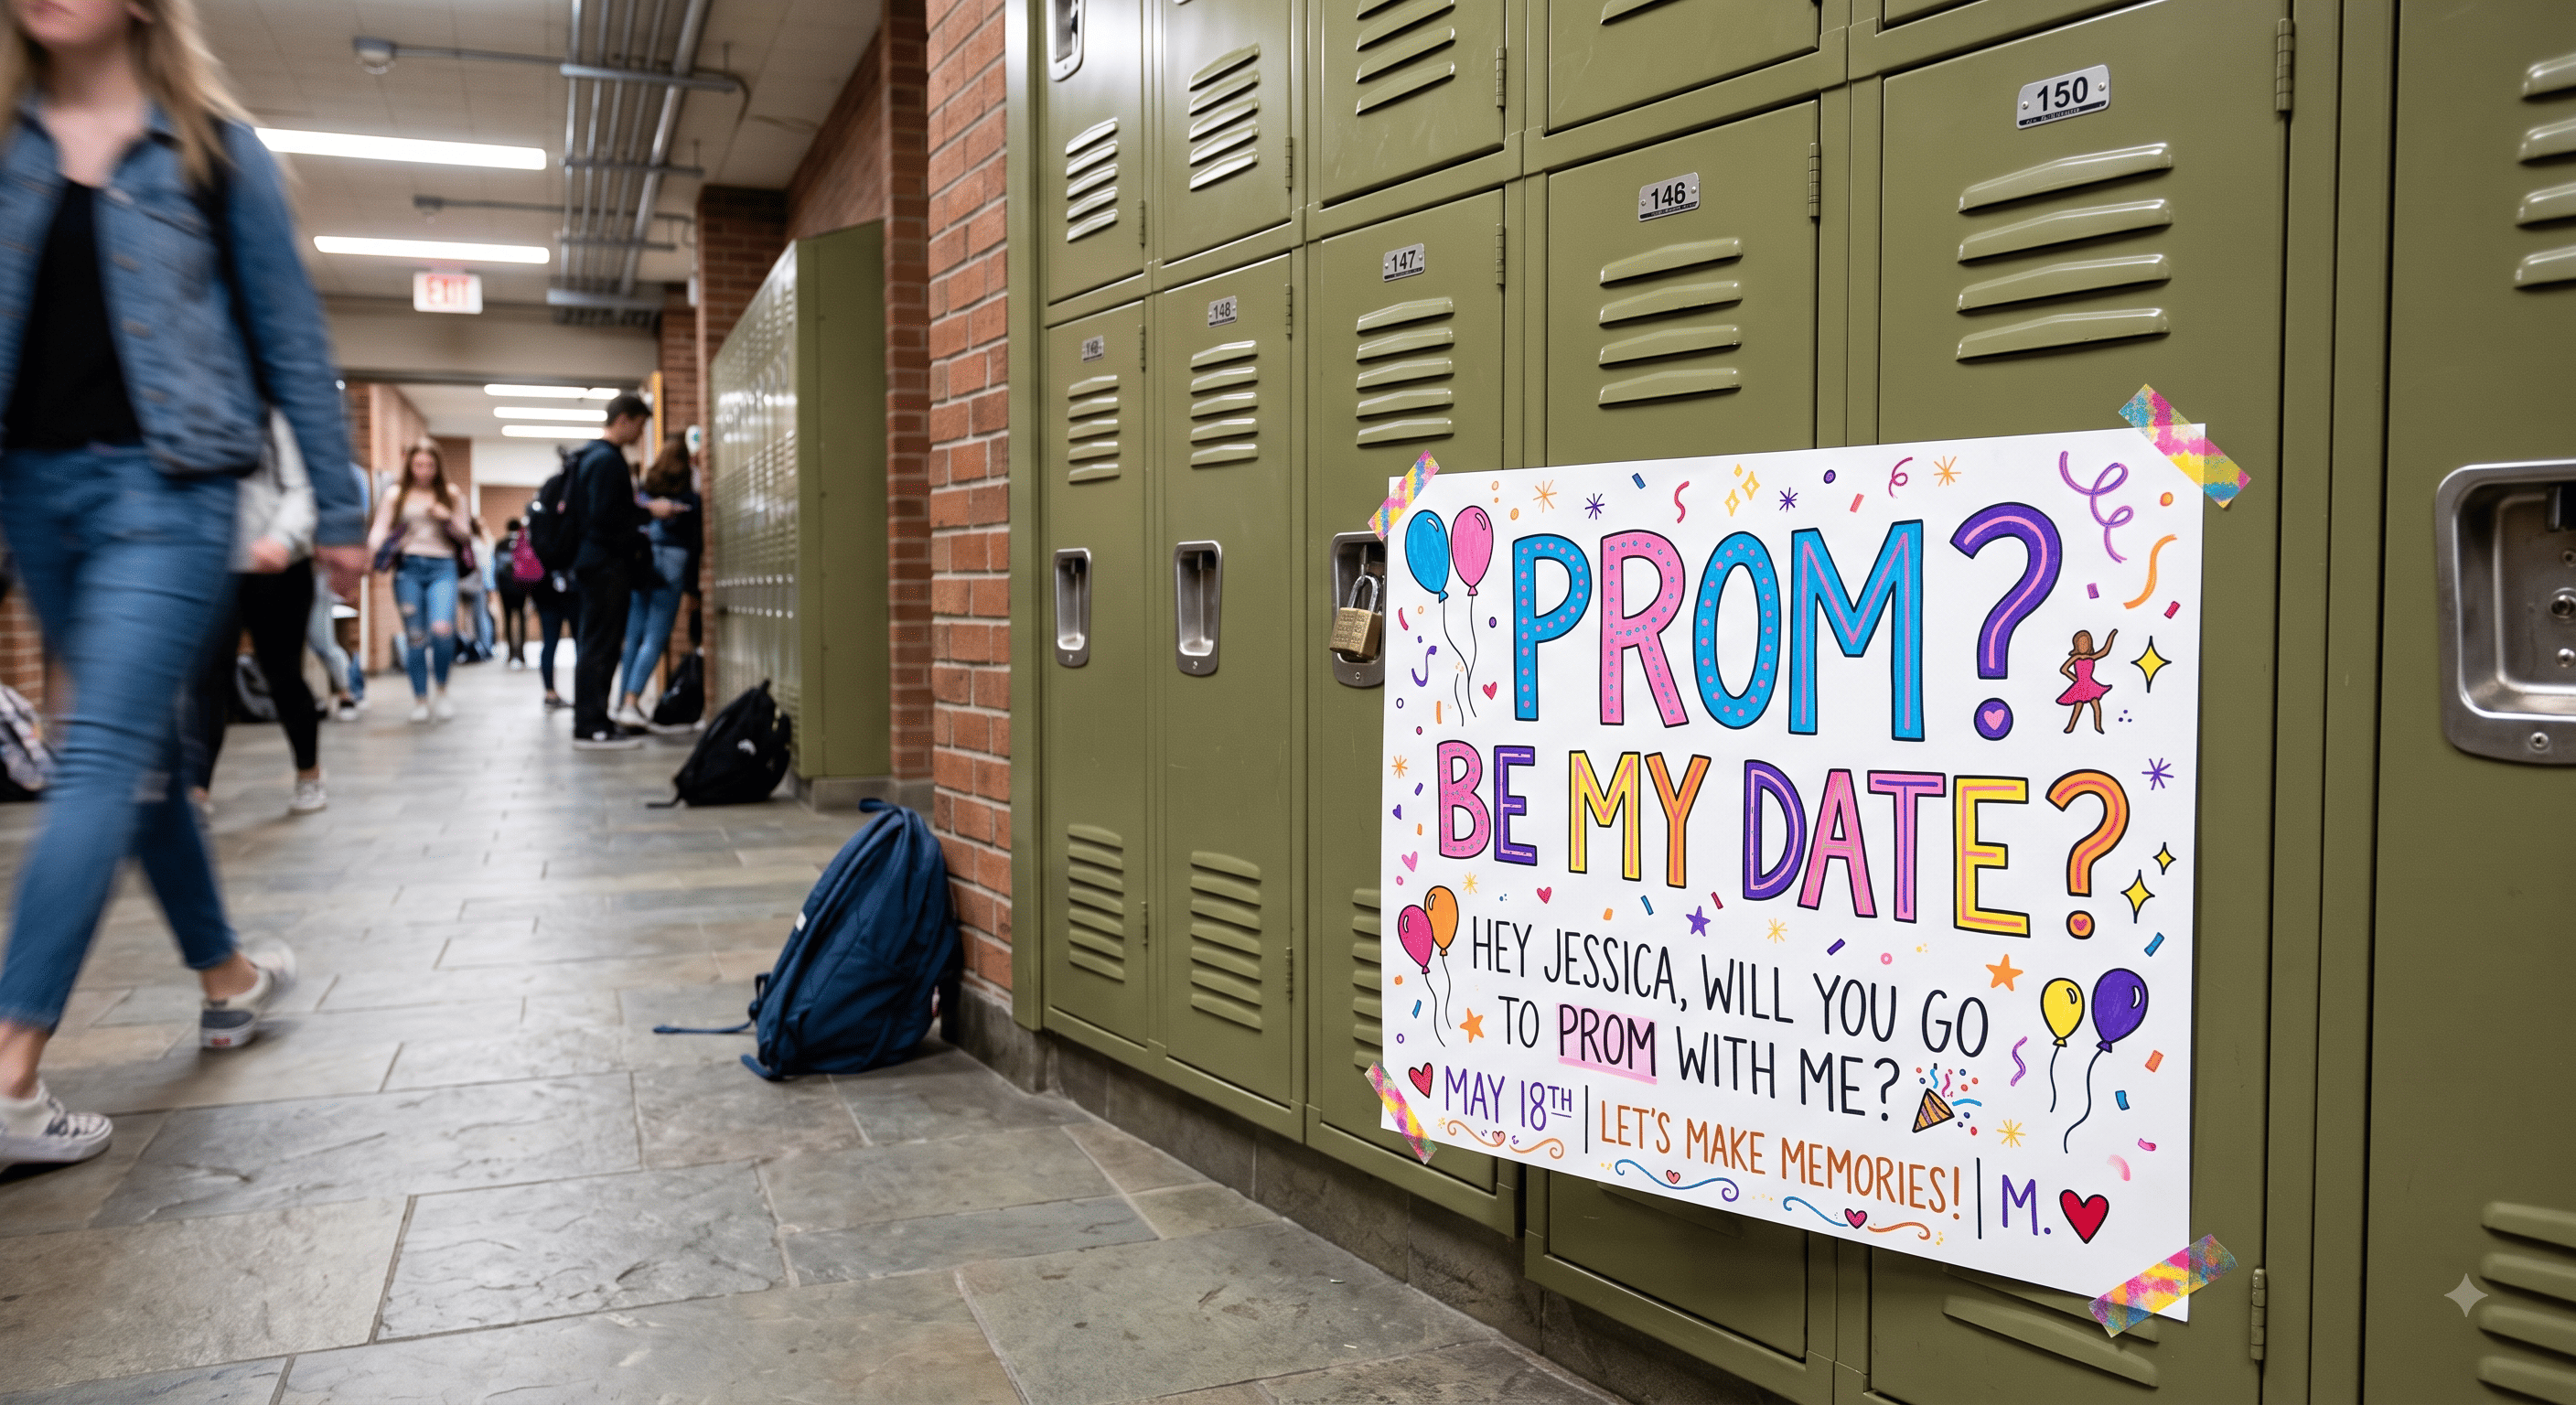 EXIT
150
146
147
148
PROM?
BE MY DATE?
HEY JESSICA, WILL YOU GO
TO PROM WITH ME?
MAY 18TH | LET'S MAKE MEMORIES! | M.